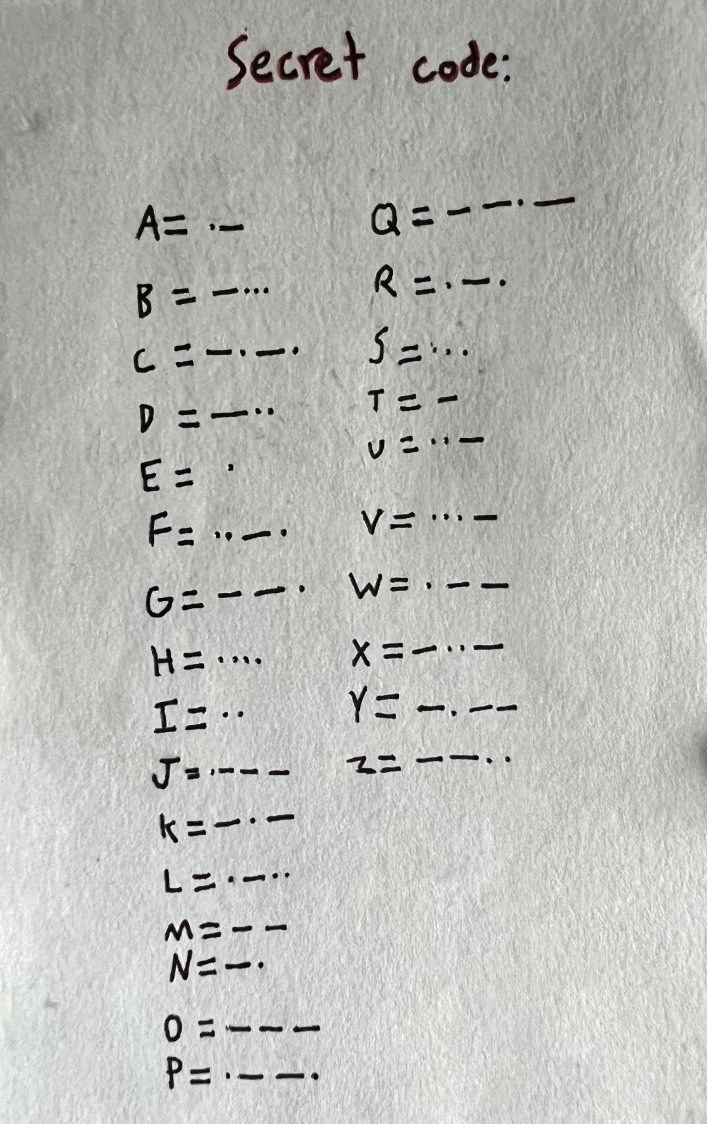 Secret code:
A= .-
B = -...
C = -.-.
D = -..
E = .
F= ..-.
G= --.
H= ....
I= ..
J= .---
K= -.-
L= .-..
M= --
N= -.
O = ---
P= .--.
Q = --.-
R = .-.
S = ...
T = -
U = ..-
V= ...-
W= .--
X = -..-
Y= -.--
Z= --..